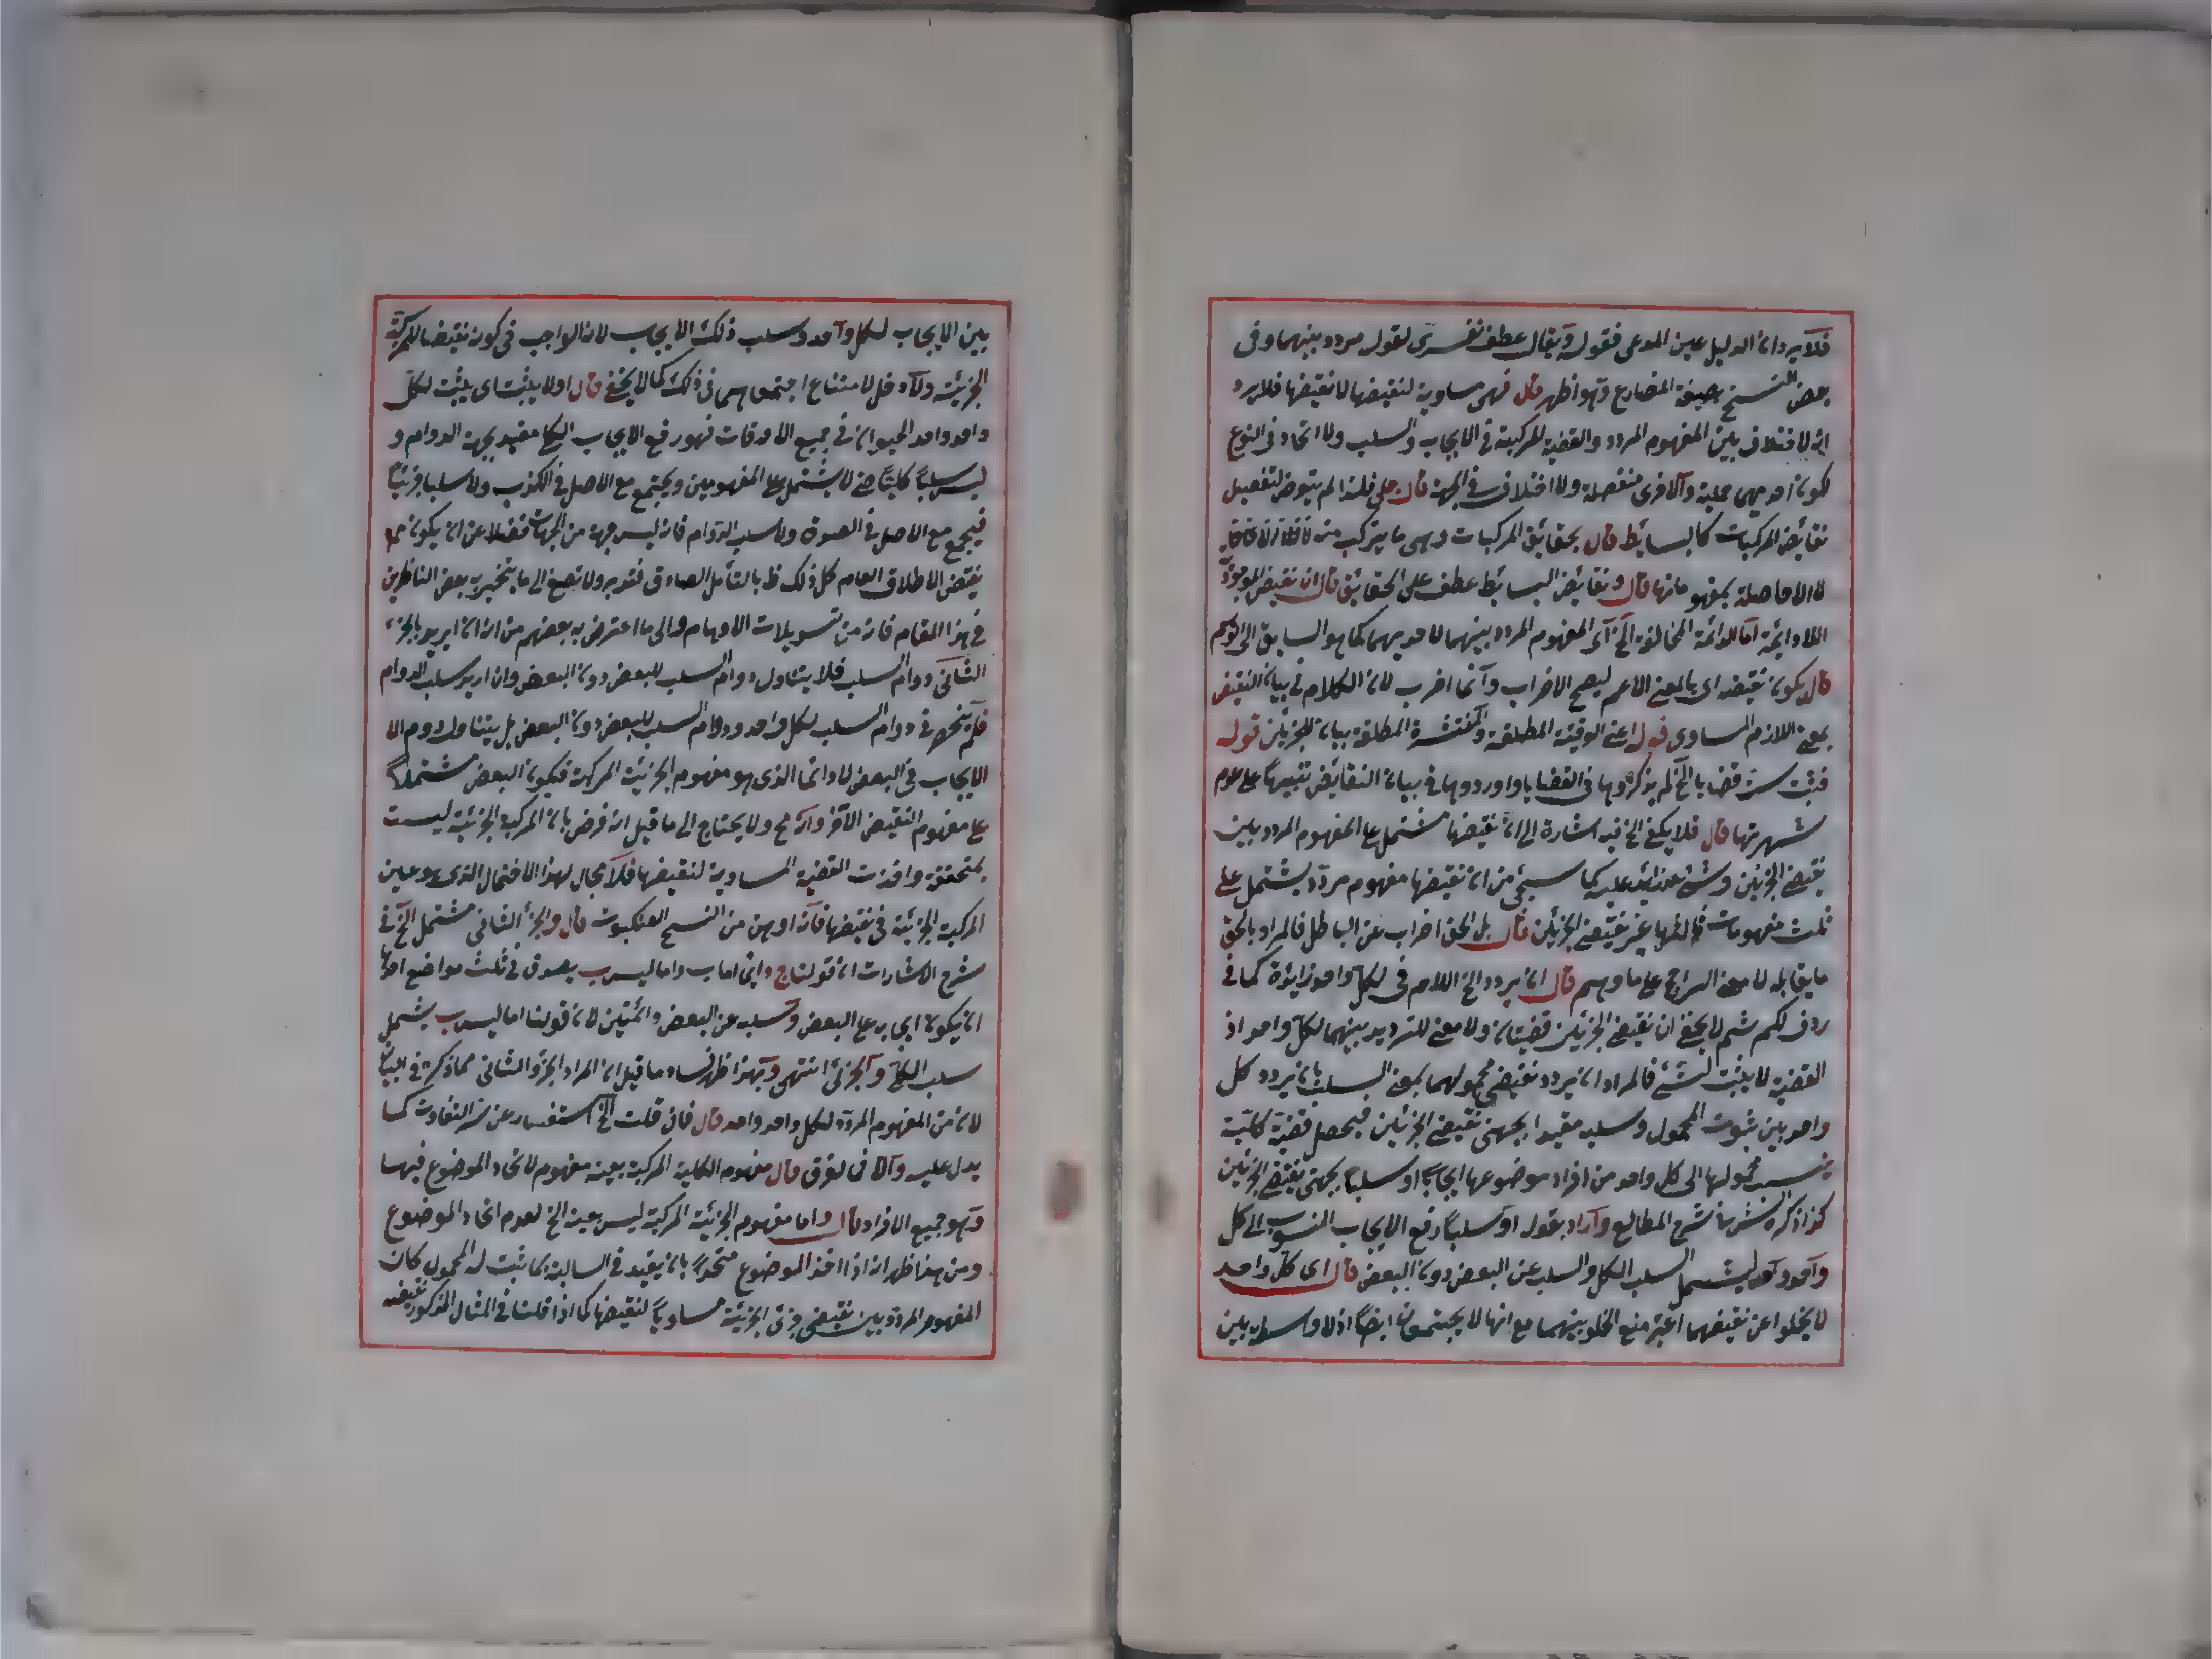 فلا يرد ان الدليل عين المدعى فقوله ويقال عطف تفسيرى لقوله مردد بينهما وفى
بعض النسخ بصيغة المضارع وهو اظهر قال فهى مساوية لنقيضها لا نقيضها فلا يرد
انه لا اختلاف بين المفهوم المردد والقضية المركبة فى الايجاب والسلب ولا اتحاد فى النوع
لكون احديهما حملية والاخرى منفصلة ولا اختلاف فى الجهة قال جلى فلذا لم يتعرض لتفصيل
نقائض المركبات كالبسائط قال بحقايق المركبات وهى ما يتركب منه
لا الا حاصلة بمفهوماتها قال ونقائض البسائط عطف على الحقايق قال ان نقيض الوجودية
اللادائمة اما الدائمة المخالفة الخ اى المفهوم المردد بينهما لا احديهما كما هو السابق الى الوهم
قال يكون نقيضه اى بالمعنى الاعم ليصح الاضراب وانما اضرب لان الكلام فى بيان النقيض
بمعنى اللازم المساوى قوله اعنى الوقتية المطلقة والمنتشرة المطلقة بيان للجزئين قوله
فتبت ست قضايا الخ لم يذكروها فى القضايا واوردوها فى بيان النقائض تنبيها على عدم
شهرتها قال فلا يكفى الخ فيه اشارة الى ان نقيضها مشتمل على المفهوم المردد بين
نقيضى الجزئين وشئ زائد عليه كما سيجئ من ان نقيضها مفهوم مردد يشتمل على
ثلث مفهومات ثالثها عين نقيضى الجزئين قال بل الحق اضراب عن الباطل فالمراد بالحق
ما يقابله لا معنى الراجح على ما وهم قال ان يردد الخ اللام فى لكل واحد زايدة كما فى
ردف لكم ثم لا يخفى ان نقيضى الجزئين قضيتان ولا معنى للترديد بينهما لكل واحد اذ
القضية لا يثبت لشئ فالمراد ان يردد نقيضى محمولهما بمعنى السلب بان يردد كل
واحد بين ثبوت المحمول وسلبه مقيدا بجهتى نقيضى الجزئين فيحصل قضية كلية
ينسب محمولها الى كل واحد من افراد موضوعها ايجابا او سلبا بجهتى نقيضى الجزئين
كذا ذكره الش فى شرح المطالع واراد بقوله او سلبا رفع الايجاب المنسوب الى كل
واحد واحد ليشمل السلب الكل والسلب عن البعض دون البعض قال اى كل واحد
لا يخلوا عن نقيضهما اعتبر منع الخلو بينهما مع انها لا يجتمعان ايضا اذ لا واسطة بين
بين الايجاب لكل واحد وسلب ذلك الايجاب لان الواجب فى كونه نقيضا للمركبة
الجزئية ولا دخل لامتناع اجتماعهما فى ذلك كما لا يخفى قال او لا يثبت اى يثبت لكل
واحد واحد الحيوان فى جميع الاوقات فهو رفع الايجاب الكلى مقيد بجهة الدوام و
ليس سلبا كليا حتى لا يشتمل على المفهومين ويجتمع مع الاصل فى الكذب ولا سلبا جزئيا
فيجتمع مع الاصل فى الصدق ولا سلب الدوام فانه ليس جهة من الجهات فضلا عن ان يكون
نقيض الاطلاق العام كل ذلك ظ بالتأمل الصادق فتدبر ولا تصغ الى ما يتحير به بعض الناظرين
فى هذا المقام فانه من تسويلات الاوهام والى ما اعترض به بعضهم من انه ان اريد بالجزء
الثانى دوام السلب فلا يتناول دوام السلب للبعض دون البعض وان اريد سلب الدوام
فلم ينحصر فى دوام السلب لكل واحد ودوام السلب للبعض دون البعض بل يتناول دوام الا
الايجاب فى البعض لا دائما الذى هو مفهوم الجزئية المركبة فيكون البعض مشتملا
على مفهوم النقيض الاخر وانه مح ولا يحتاج الى ما قيل انه فرض بان المركبة الجزئية ليست
بمتحققة واخذت القضية المساوية لنقيضها فلا مجال لهذا الاحتمال الذى هو عين
المركبة الجزئية فى نقيضها فانه اوهن من النسج العنكبوت قال والجزء الثانى مشتمل الخ فى
شرح الاشارات ان قولنا ج دائما اما ب واما ليس ب يصدق فى ثلث مواضع احدها
ان يكون ايجابه على البعض وسلبه عن البعض دائمتين لان قولنا اما ليس ب يشمل
سلب الكلى والجزئى انتهى وبهذا ظهر فساد ما قيل ان المراد الجزء الثانى مما ذكره فى البيان
لا من المفهوم المردد لكل واحد واحد قال فان قلت الخ استفسار عن سر التفاوت كما
يدل عليه والا فى لفرق قال مفهوم الكلية المركبة بعينه مفهوم لاتحاد الموضوع فيها
وهو جميع الافراد قال واما مفهوم الجزئية المركبة ليس بعينه الخ لعدم اتحاد الموضوع
ومن هذا ظهر انه اذا اخذ الموضوع متحدا بان يقيد فى السالبة بما ثبت له المحمول كان
المفهوم المردد بين نقيضى جزئى الجزئية مساويا لنقيضها كما اذا قلنا فى المثال المذكور نقيضه